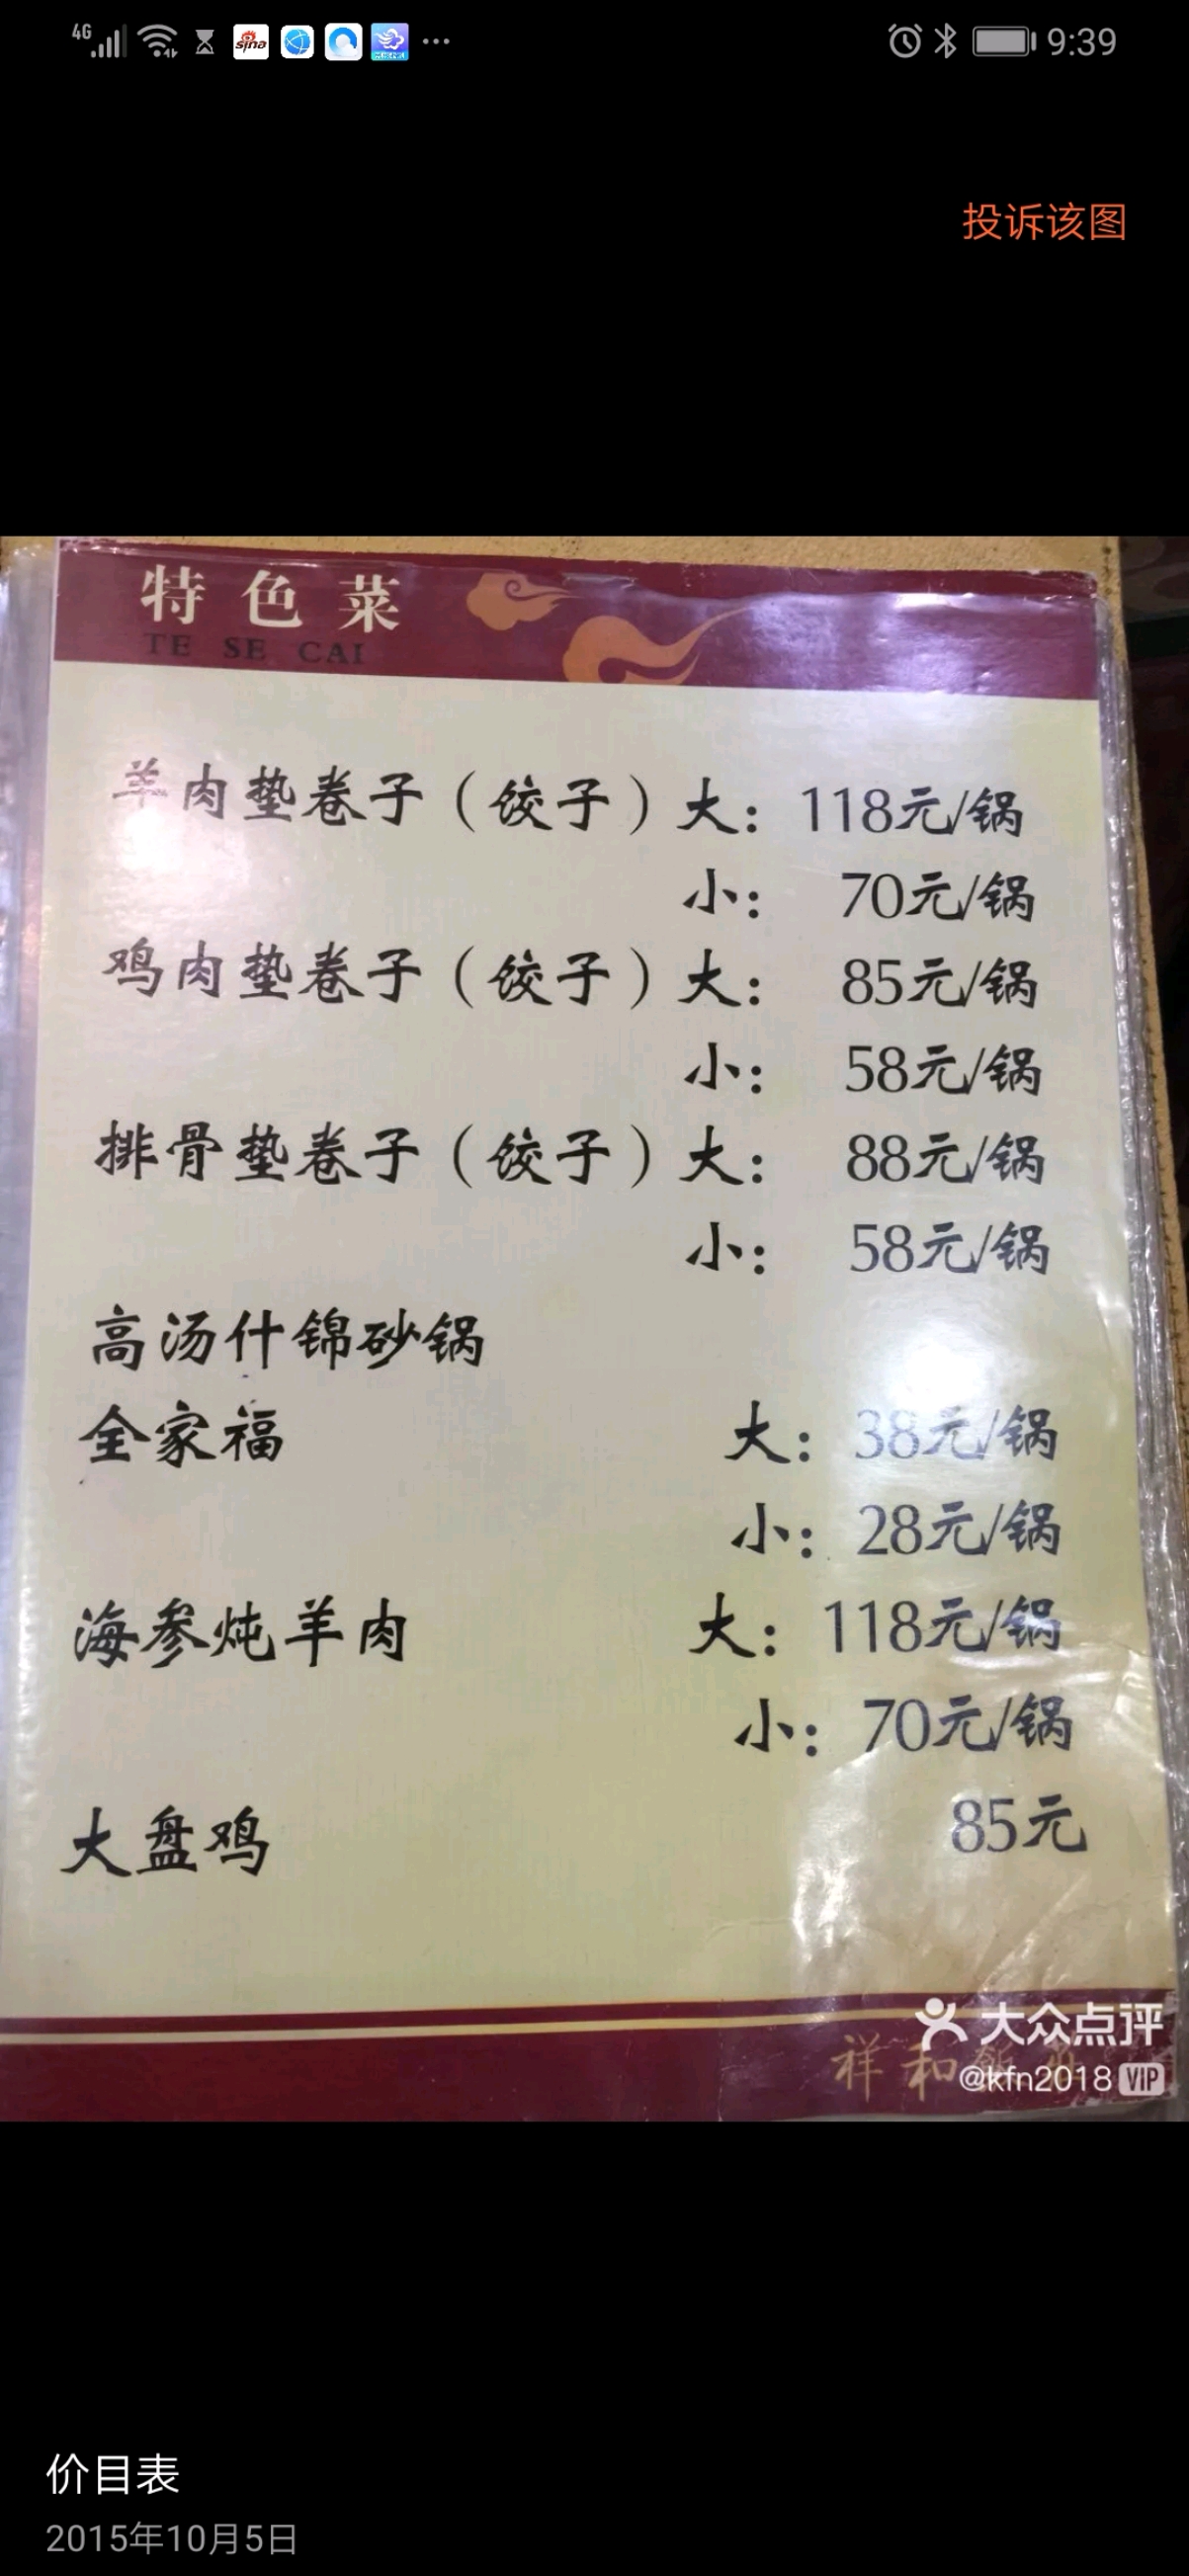 4G
sina
9:39
投诉该图
特色菜
TE SE CAI
羊肉垫卷子（饺子）大：118元/锅
小：70元/锅
鸡肉垫卷子（饺子）大：85元/锅
小：58元/锅
排骨垫卷子（饺子）大：88元/锅
小：58元/锅
高汤什锦砂锅
全家福 大：38元/锅
小：28元/锅
海参炖羊肉 大：118元/锅
小：70元/锅
大盘鸡 85元
大众点评
祥和
@kfn2018 VIP
价目表
2015年10月5日